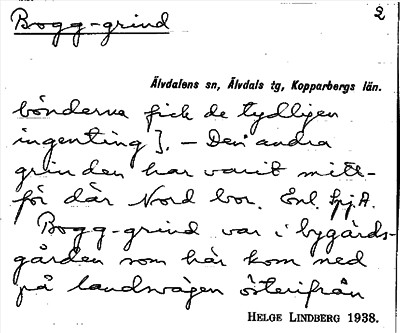 Bogg-grind
2
Älvdalens sn, Älvdals tg, Kopparbergs län.
bönderna fick de tydligen
ingenting]. – Den andra
grinden har varit mitt-
för där Nord bor. Enl. hj. A.
Bogg-grind var i bygårds-
gården som här kom ned
på landsvägen österifrån
HELGE LINDBERG 1938.